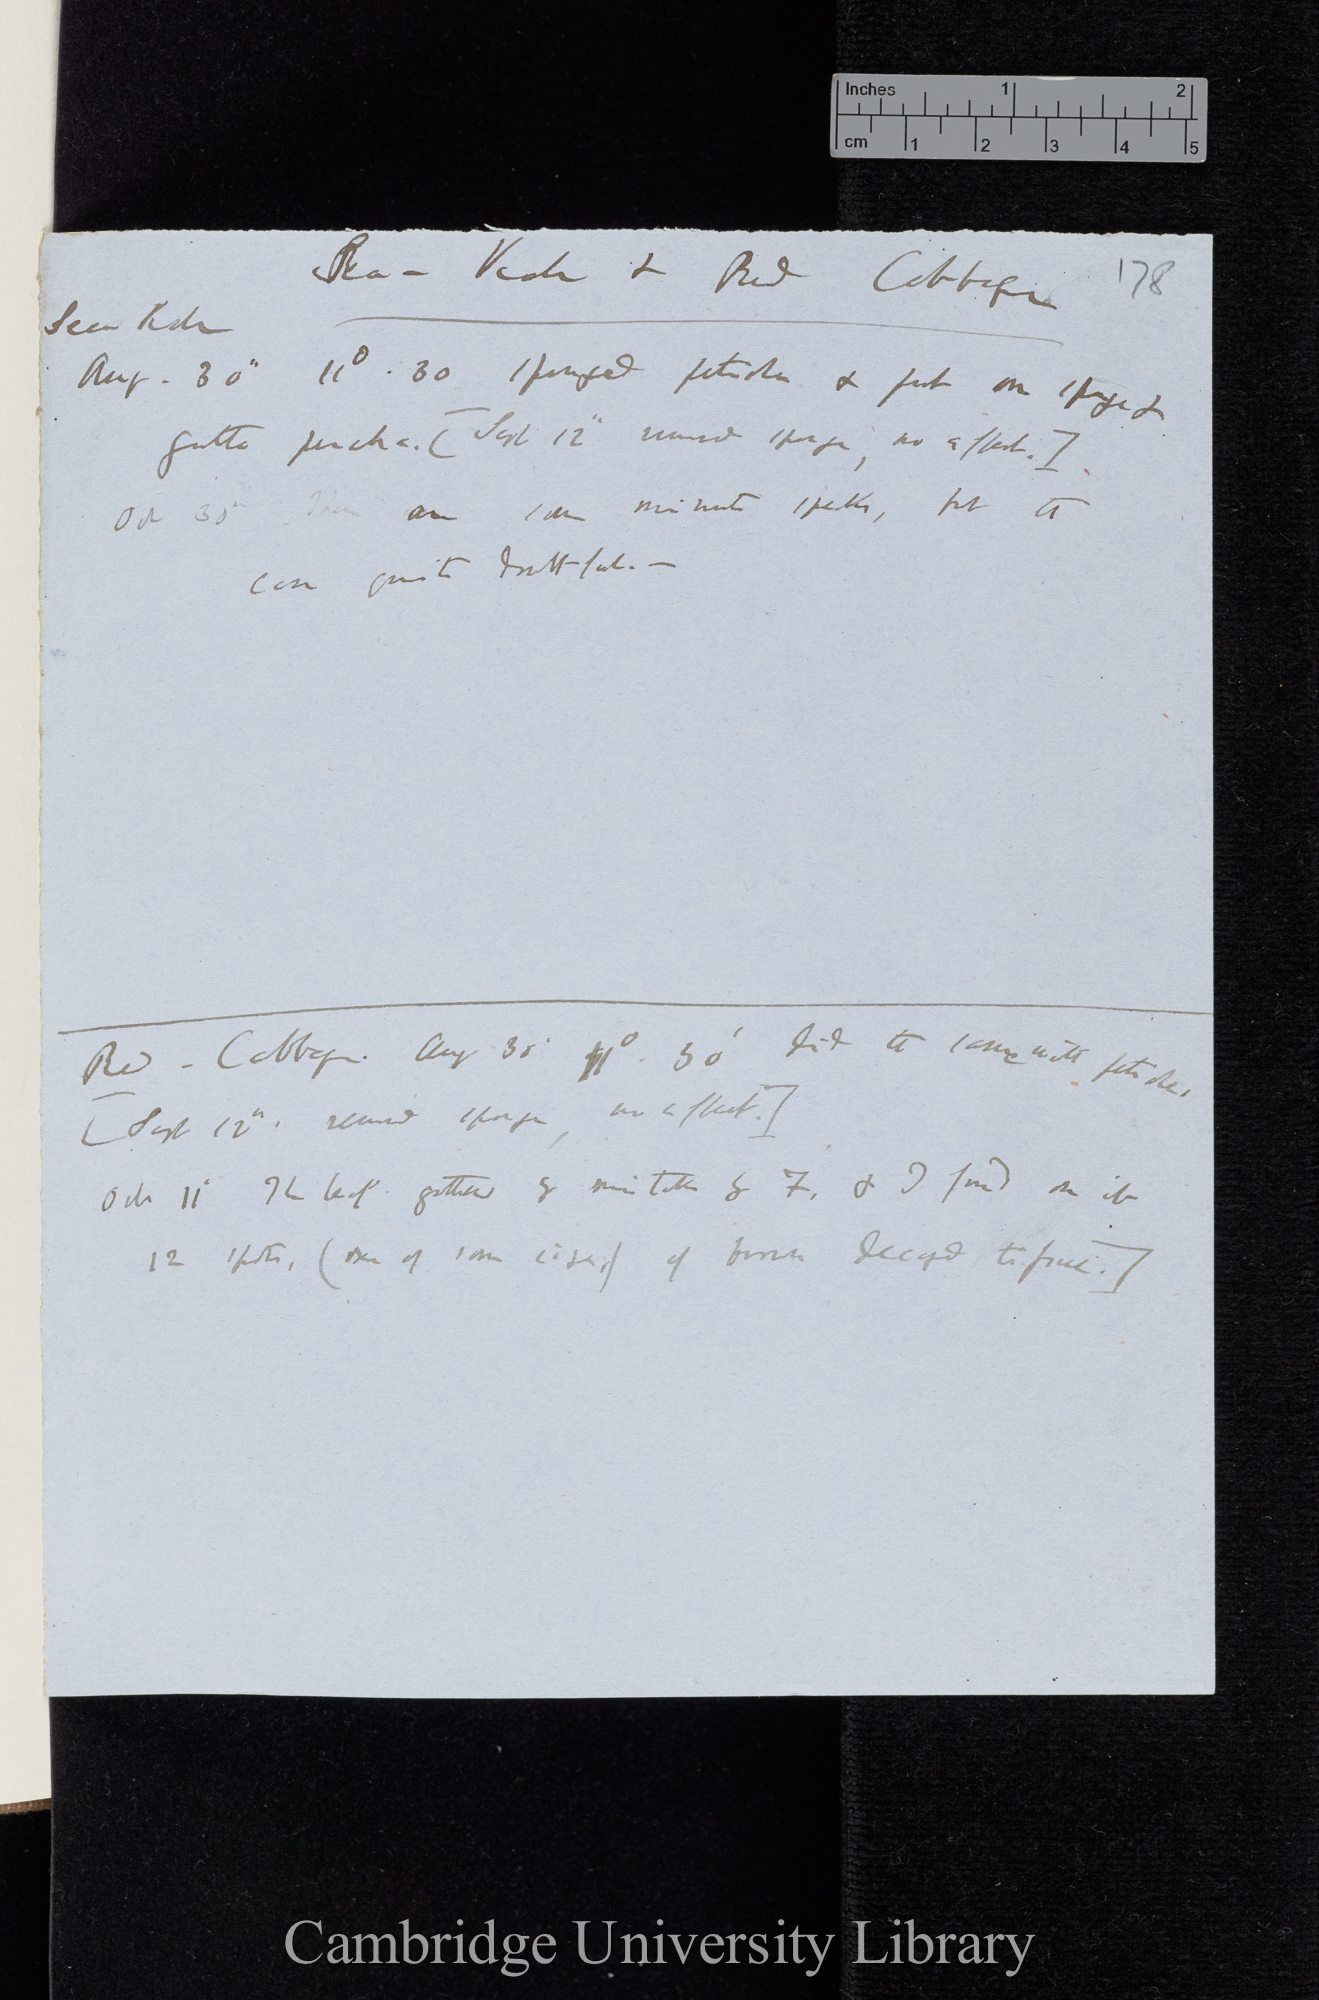 Inches 1 2
cm 1 2 3 4 5
Sea-Kale & Red Cabbage 178
Sea Kale
Aug. 30" 11°. 30 sponged petioles & put on sponge &
gutta percha. [Sept 12" removed sponge, no effect.]
Oct 30" There are some minute specks, but the
case quite doubtful.—
Red-Cabbage. Aug 30" 11°. 30' did the same with petioles.
[Sept 12". removed sponge, no effect.]
Oct 11" The leaf gathered by mistake by F. & I find on it
12 spots, (one of some size,) of brown decayed tissue.]
Cambridge University Library